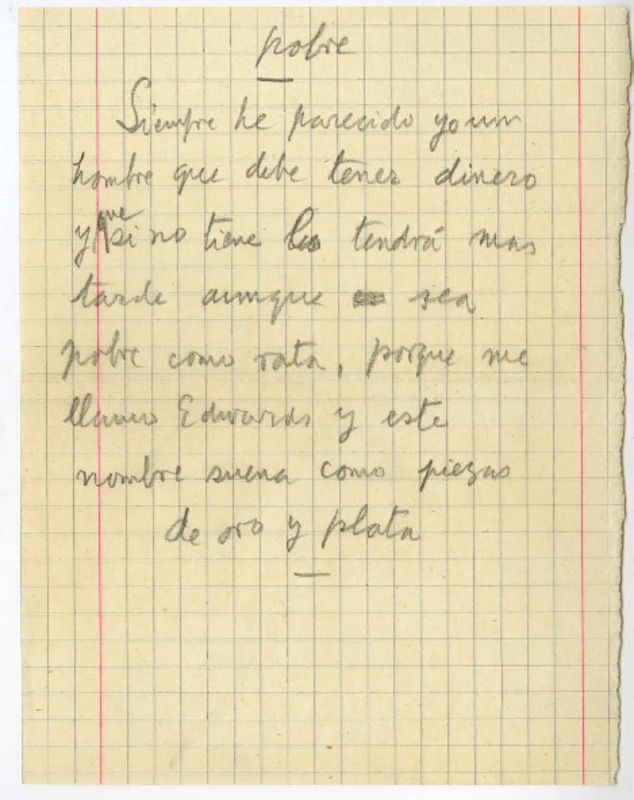 pobre
Siempre he parecido yo un
hombre que debe tener dinero
y que si no tiene lo tendrá mas
tarde aunque sea
pobre como rata, porque me
llamo Edwards y este
nombre suena como piezas
de oro y plata